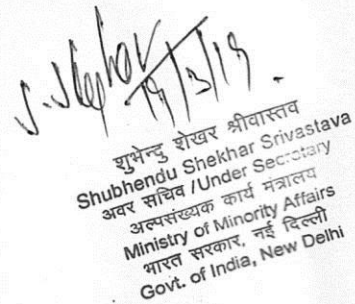 S. Shekhar
19/3/19
शुभेन्दु शेखर श्रीवास्तव
Shubhendu Shekhar Srivastava
अवर सचिव /Under Secretary
अल्पसंख्यक कार्य मंत्रालय
Ministry of Minority Affairs
भारत सरकार, नई दिल्ली
Govt. of India, New Delhi